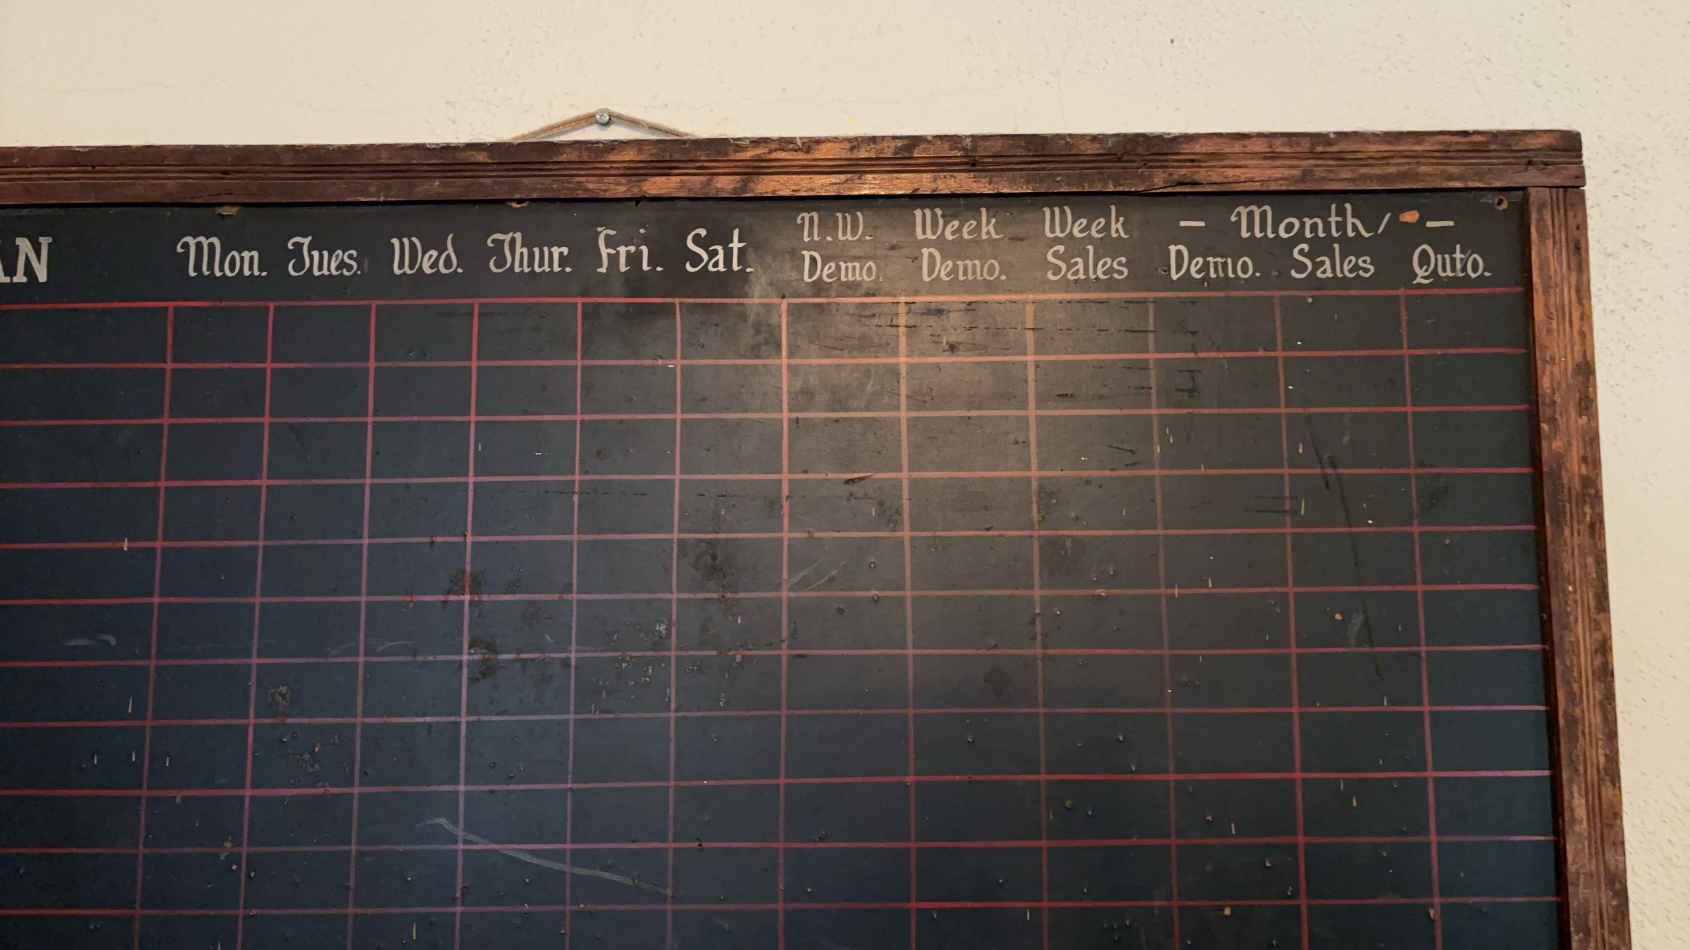 AN Mon. Tues. Wed. Thur. Fri. Sat. N.W. Demo. Week Demo. Week Sales — Month — Demo. Sales Quto.